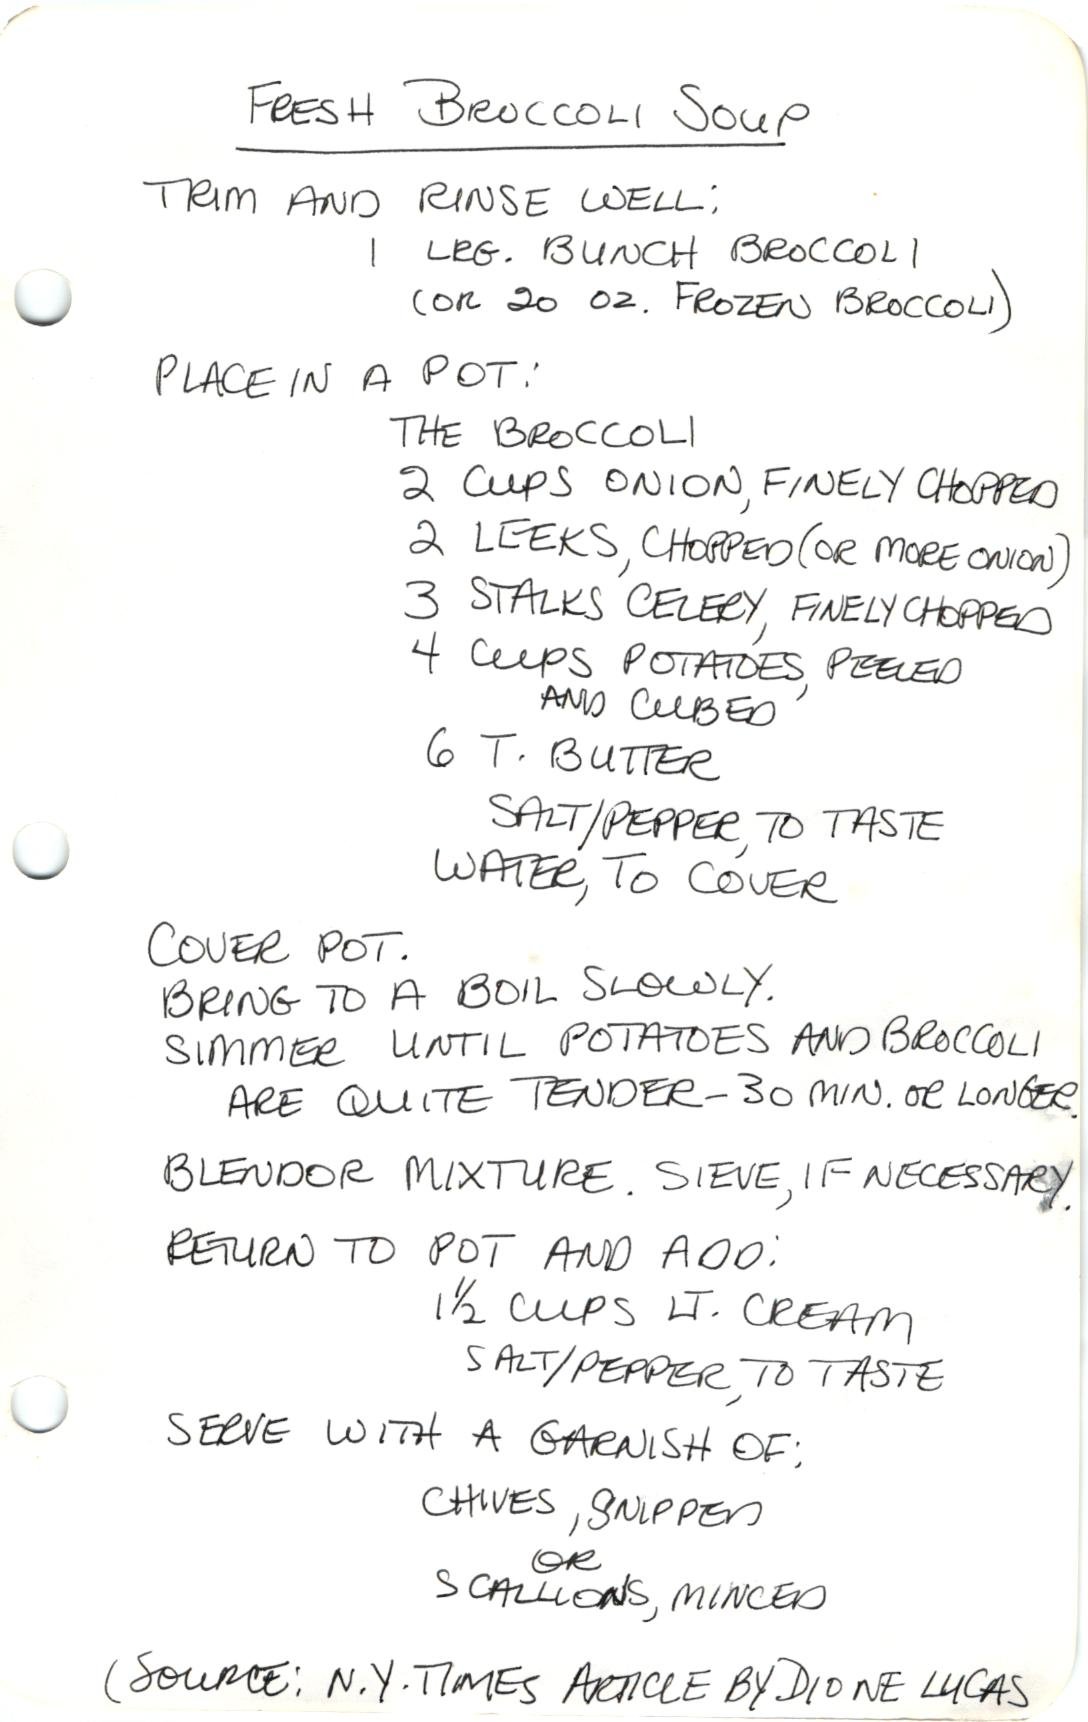 FRESH BROCCOLI SOUP
TRIM AND RINSE WELL:
1 LRG. BUNCH BROCCOLI
(OR 20 OZ. FROZEN BROCCOLI)
PLACE IN A POT:
THE BROCCOLI
2 CUPS ONION, FINELY CHOPPED
2 LEEKS, CHOPPED (OR MORE ONION)
3 STALKS CELERY, FINELY CHOPPED
4 CUPS POTATOES, PEELED
AND CUBED
6 T. BUTTER
SALT/PEPPER, TO TASTE
WATER, TO COVER
COVER POT.
BRING TO A BOIL SLOWLY.
SIMMER UNTIL POTATOES AND BROCCOLI
ARE QUITE TENDER - 30 MIN. OR LONGER.
BLENDOR MIXTURE. SIEVE, IF NECESSARY.
RETURN TO POT AND ADD:
1½ CUPS LT. CREAM
SALT/PEPPER, TO TASTE
SERVE WITH A GARNISH OF:
CHIVES, SNIPPED
OR
SCALLIONS, MINCED
(SOURCE: N.Y. TIMES ARTICLE BY DIONE LUCAS